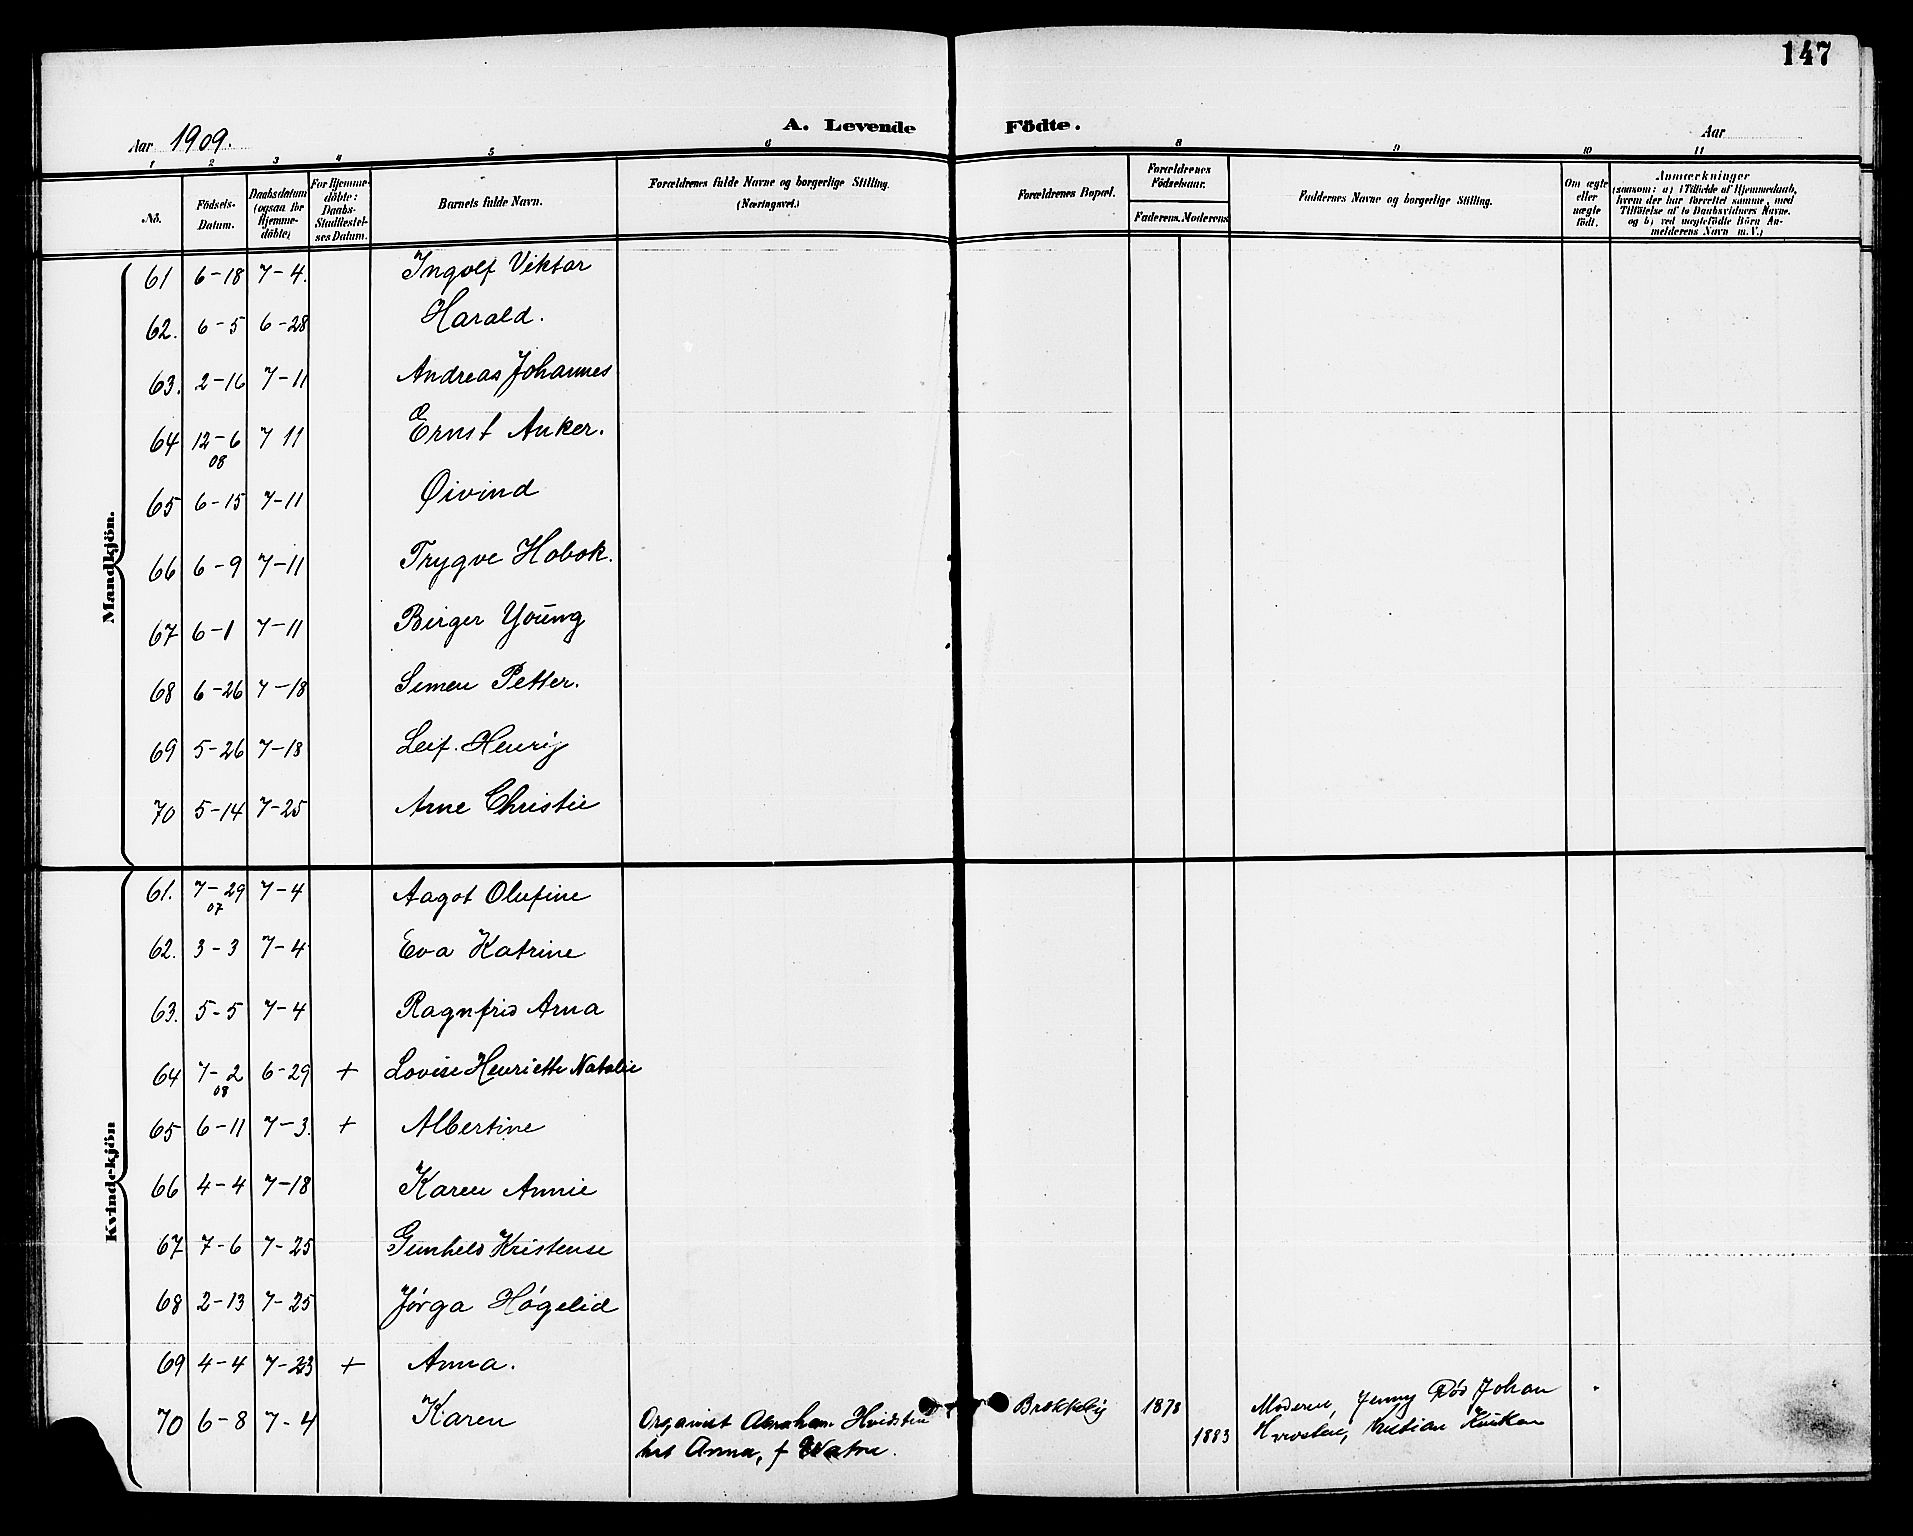 147
A. Levende Födte.
Aar 1909.
Aar
1 2 3 4 5 6 8 9 10 11
No.
Födsels-Datum.
Daabsdatum (ogsaa for Hjemme-döbte)
For Hjemme-döbte: Daabs-Stadfæstel-ses Datum.
Barnets fulde Navn.
Forældrenes fulde Navne og borgerlige Stilling. (Næringsvei.)
Forældrenes Bopæl.
Forældrenes Födselsaar.
Faderens. Moderens.
Faddernes Navne og borgerlige Stilling.
Om ægte eller uægte födt.
Anmærkninger
(saasom: a) i Tilfælde af Hjemmedaab, hvem der har forrettet samme, med Tilföielse af to Daabsvidners Navne, og b) ved uægtefödte Börn An-melderens Navn m. V.)
Mandkjön.
61 6-18 7-4. Ingolf Viktor
62. 6-5 6-28 Harald.
63. 2-16 7-11 Andreas Johannes
64 12-6 08 7 11 Ernst Anker.
65 6-15 7-11 Øivind
66 6-9 7-11 Trygve Hobok.
67 6-1 7-11 Birger Young
68 6-26 7-18 Simen Petter.
69 5-26 7-18 Leif Henrij
70 5-14 7-25 Arne Christie
Kvindekjön
61. 7-29 07 7-4 Aagot Olufine
62. 3-3 7-4 Eva Katrine
63. 5-5 7-4 Ragnfrid Arna
64 7-2 08 6-29 + Lovise Henriette Natalie
65 6-11 7-3. + Albertine
66 4-4 7-18 Karen Annie
67 7-6 7-25 Gunhild Kristense
68 2-13 7-25 Jørga Høgelid
69 4-4 7-23 + Anna.
70 6-8 7-4 Karen Organist Abraham Hvidsten Brækkeby 1878 Moderen, Jenny Johan
hst Anna, f 1883 Kristian